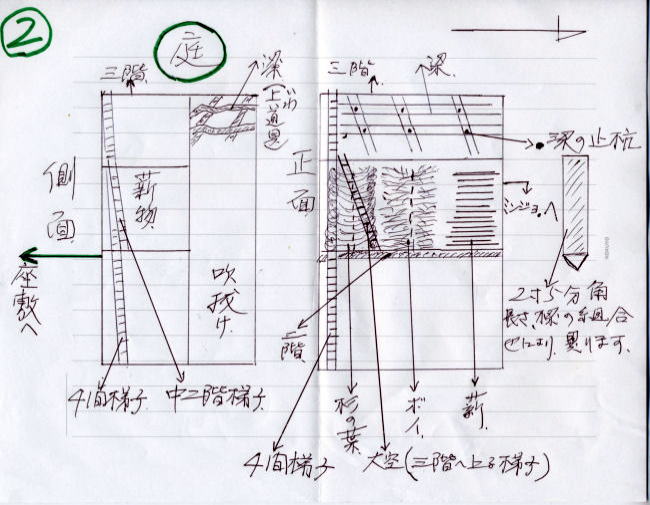 ②
庭
三階
梁
上道具
側面
薪物
吹抜け
座敷へ
4間梯子
中二階梯子
三階
梁
正面
梁の止杭
ミンジョへ
2寸5分角
長さ、梁の組合
せにより、異ります。
二階
杉の葉
ボイ
薪
4間梯子
大空(三階へ上る梯子)